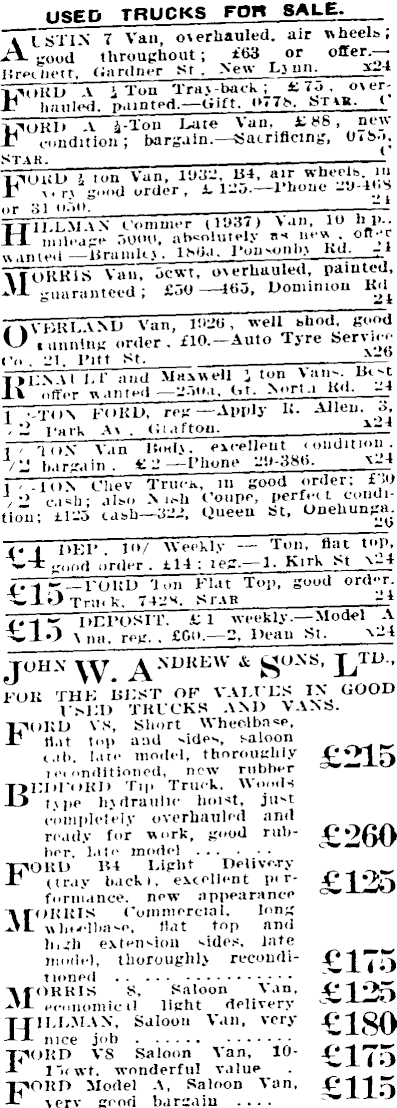 USED TRUCKS FOR SALE.
AUSTIN 7 Van, overhauled, air wheels;
good throughout; £63 or offer.—
Brechett, Gardner St, New Lynn. x24
FORD A ½ Ton Tray-back; £75, over-
hauled, painted.—Gift, 0778, STAR. C
FORD A ½-Ton Late Van, £88, new
condition; bargain.—Sacrificing, 0785,
STAR. C
FORD ½ ton Van, 1932, B4, air wheels, in
very good order, £125.—Phone 29-468
or 31 050. 24
HILLMAN Commer (1937) Van, 10 h.p.,
mileage 5000, absolutely as new, offer
wanted—Bramley, 186a, Ponsonby Rd. 24
MORRIS Van, 5cwt, overhauled, painted,
guaranteed; £50—465, Dominion Rd
24
OVERLAND Van, 1926, well shod, good
running order, £10.—Auto Tyre Service
Co., 21, Pitt St. x26
RENAULT and Maxwell ½ ton Vans. Best
offer wanted—250a, Gt. North Rd. 24
1½-TON FORD, reg—Apply R. Allen, 3,
Park Av, Grafton. x24
1½ TON Van Body, excellent condition,
bargain, £2—Phone 29-386. x24
1½-TON Chev Truck, in good order; £30
cash; also Nash Coupe, perfect condi-
tion; £125 cash—322, Queen St, Onehunga.
26
£4 DEP, 10/ Weekly — Ton, flat top,
good order, £14; reg.—1, Kirk St x24
£15—FORD Ton Flat Top, good order.
Truck, 7428, STAR 24
£15 DEPOSIT, £1 weekly.—Model A
Van, reg., £60.—2, Dean St. x24
JOHN W. ANDREW & SONS, LTD.,
FOR THE BEST OF VALUES IN GOOD
USED TRUCKS AND VANS.
FORD V8, Short Wheelbase,
flat top and sides, saloon
cab, late model, thoroughly
reconditioned, new rubber £215
BEDFORD Tip Truck, Woods
type hydraulic hoist, just
completely overhauled and
ready for work, good rub-
ber, late model ...... £260
FORD B4 Light Delivery
(tray back), excellent per-
formance, new appearance £125
MORRIS Commercial, long
wheelbase, flat top and
high extension sides, late
model, thoroughly recondi-
tioned .............. £175
MORRIS 8, Saloon Van,
economical light delivery £125
HILLMAN, Saloon Van, very
nice job ............ £180
FORD V8 Saloon Van, 10-
15cwt, wonderful value . £175
FORD Model A, Saloon Van,
very good bargain .... £115